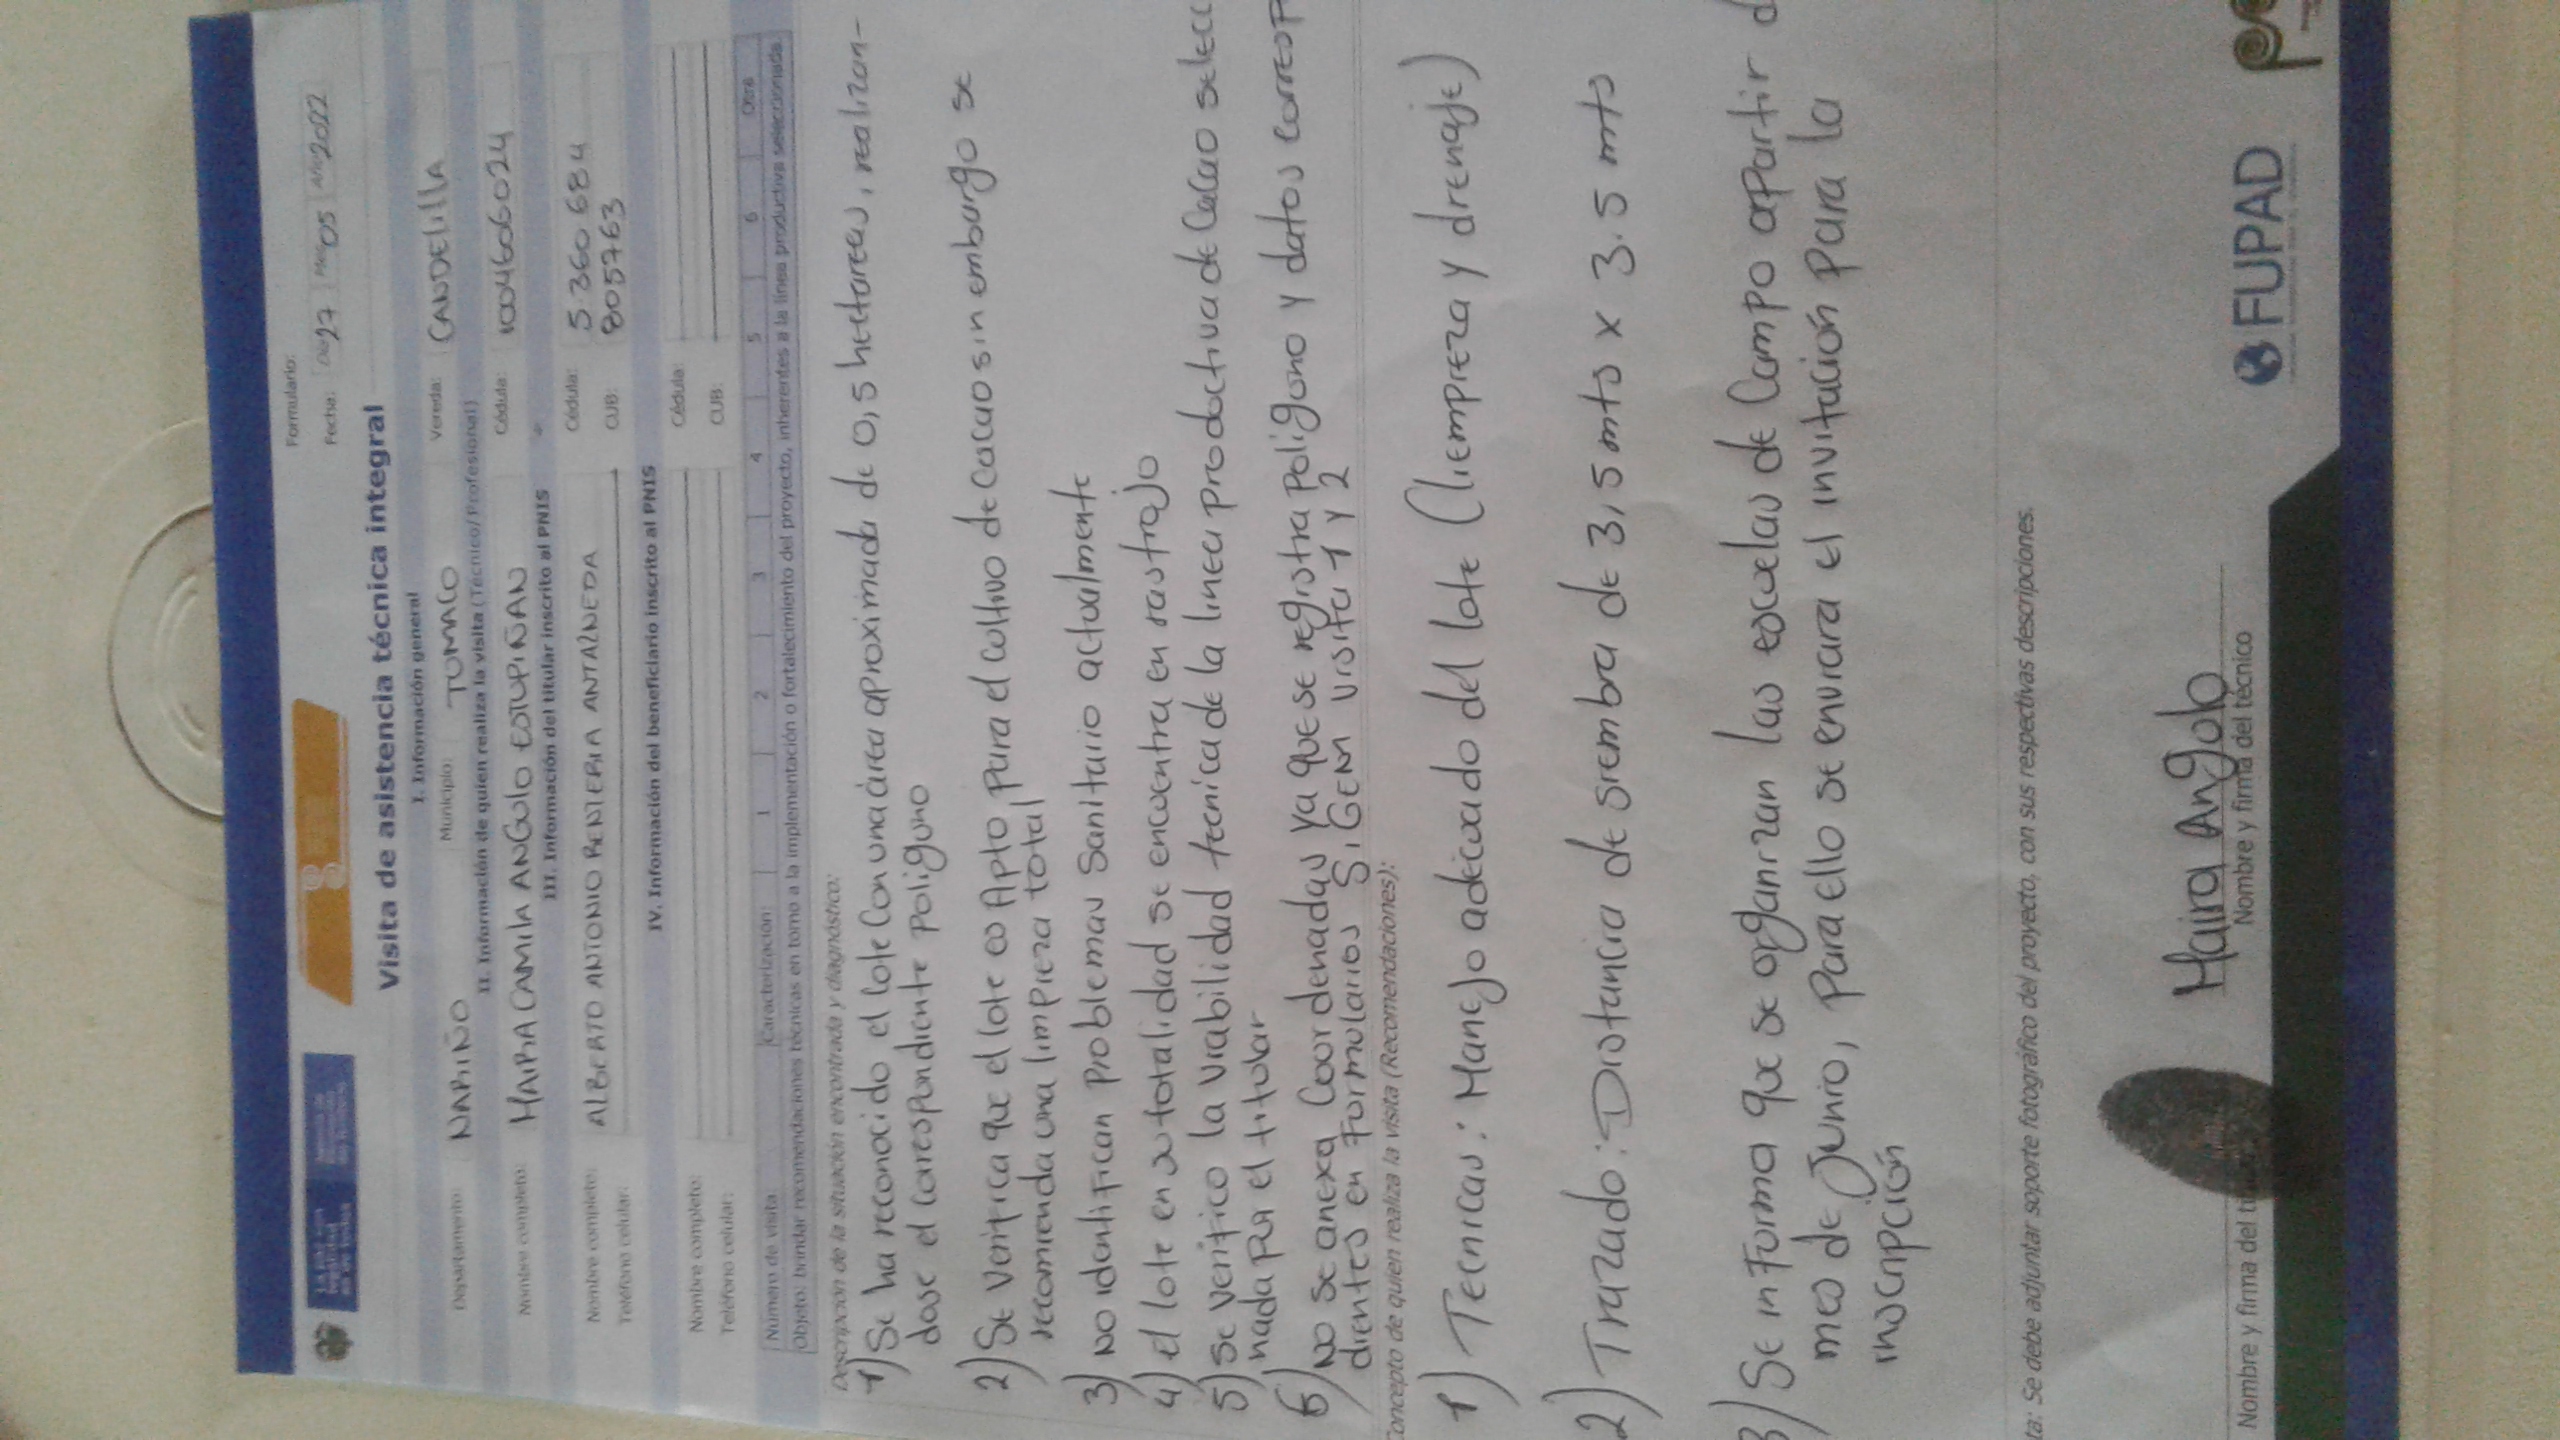 Formulario:
Fecha: Día 27 Mes 05 Año 2022
Visita de asistencia técnica integral
I. Información general
Departamento: NARIÑO Municipio: TUMACO Vereda: CANDELILLA
II. Información de quien realiza la visita (Técnico/Profesional)
Nombre completo: MAIRA CAMILA ANGULO ESTUPIÑAN Cédula: 1004606024
III. Información del titular inscrito al PNIS
Nombre completo: ALBERTO ANTONIO RENTERIA ANTAZNEDA Cédula: 5.360.684
Teléfono celular: CUB: 805763
IV. Información del beneficiario inscrito al PNIS
Nombre completo: Cédula:
Teléfono celular: CUB:
Número de visita Caracterización: 1 2 3 4 5 6 Otra
Objeto: brindar recomendaciones técnicas en torno a la implementación o fortalecimiento del proyecto, inherentes a la línea productiva seleccionada.
Descripción de la situación encontrada y diagnóstico:
1) Se ha reconocido el lote con una área aproximada de 0,5 hectareas, realizan-
dose el correspondiente poligono
2) Se verifica que el lote es Apto, para el cultivo de cacao sin embargo se
recomienda una limpieza total
3) No identifican Problemas Sanitario actualmente
4) el lote en su totalidad se encuentra en rastrojo
5) se verifico la viabilidad tecnica de la linea productiva de cacao selecc
nada por el titular
6) No se anexa Coordenadas ya que se registra poligono y datos corresp
dientes en Formularios SIGEM visita 1 y 2
Concepto de quien realiza la visita (Recomendaciones):
1) Tecnicas: Manejo adecuado del lote (liempieza y drenaje)
2) Trazado: Distancia de siembra de 3,5 mts x 3.5 mts
3) Se informa que se organizan las escuelas de Campo apartir d
mes de Junio, Para ello se enviara el invitación para la
inscripción
ta: Se debe adjuntar soporte fotográfico del proyecto, con sus respectivas descripciones.
Maira Angulo
Nombre y firma del Nombre y firma del técnico
FUPAD